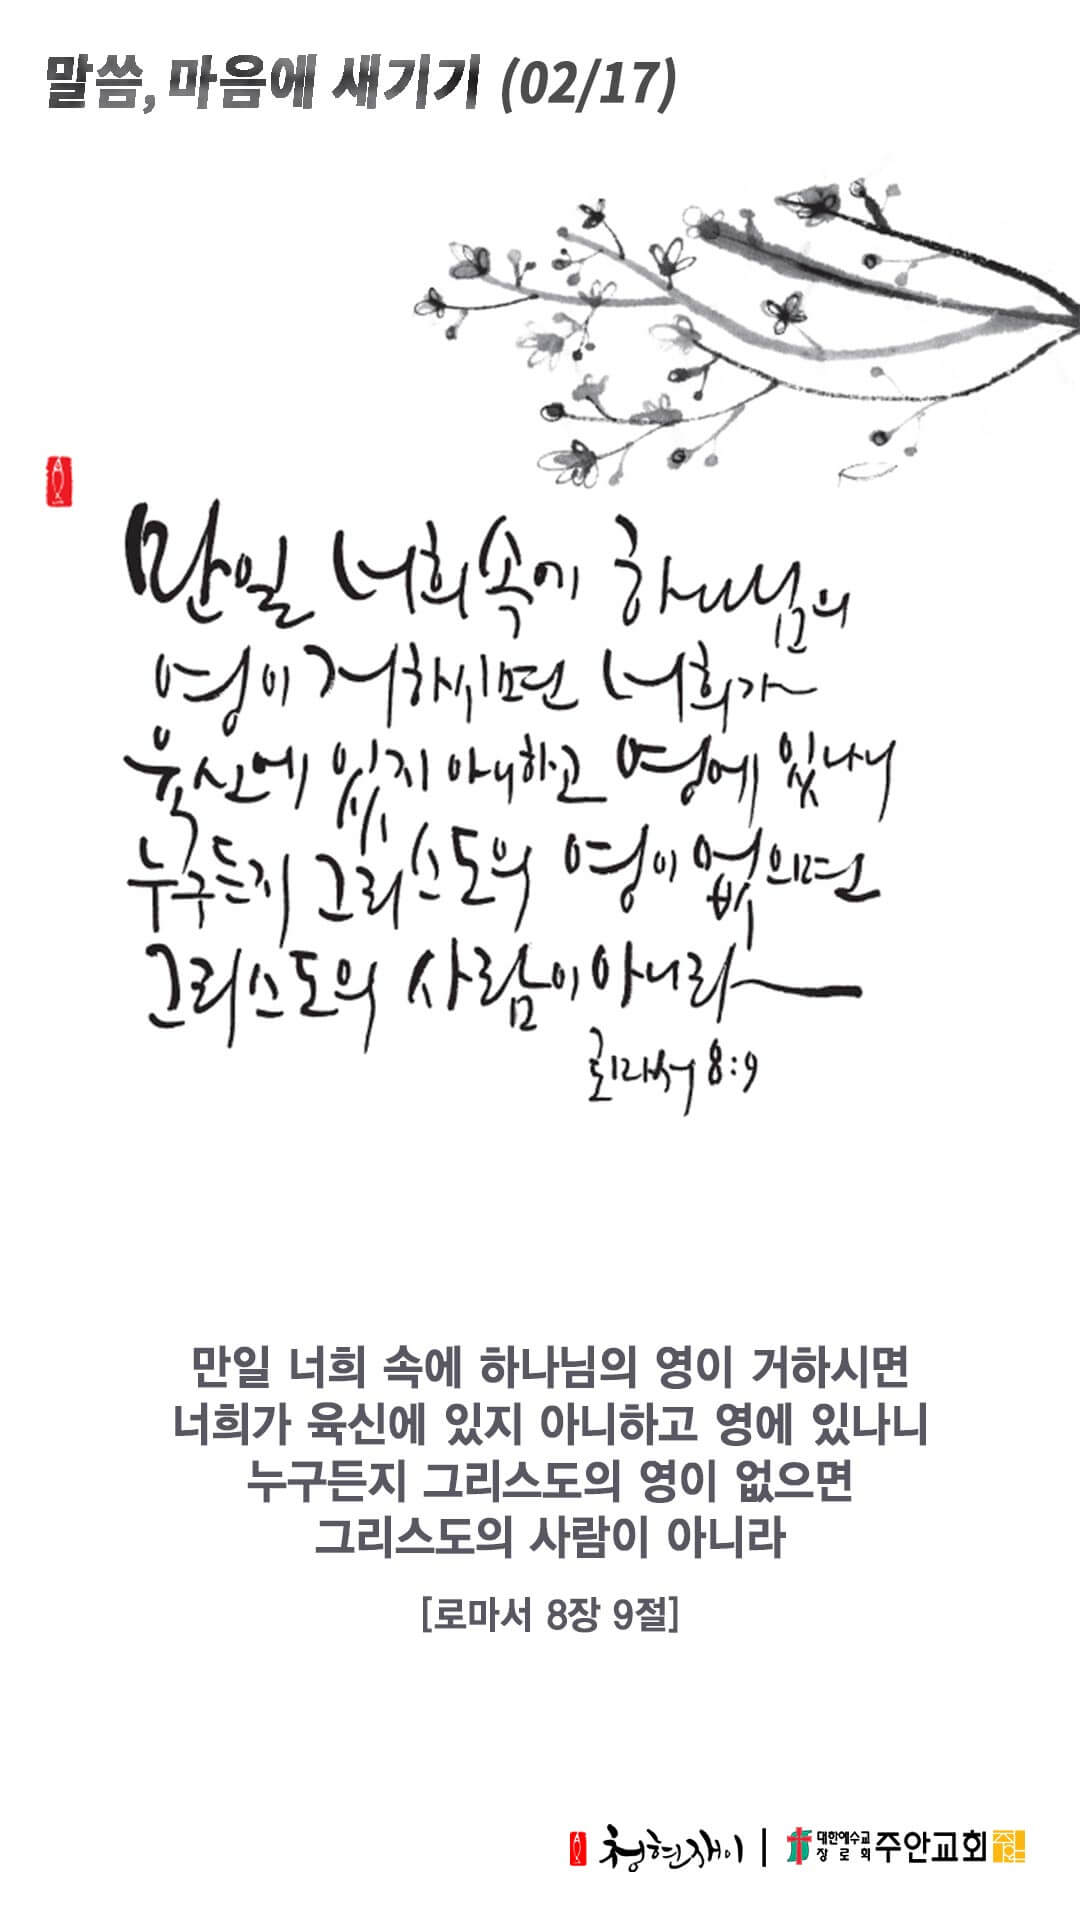 말씀, 마음에 새기기 (02/17)
만일 너희 속에 하나님의
영이 거하시면 너희가
육신에 있지 아니하고 영에 있나니
누구든지 그리스도의 영이 없으면
그리스도의 사람이 아니라
로마서 8:9
만일 너희 속에 하나님의 영이 거하시면
너희가 육신에 있지 아니하고 영에 있나니
누구든지 그리스도의 영이 없으면
그리스도의 사람이 아니라
[로마서 8장 9절]
청현재이 | 대한예수교장로회 주안교회